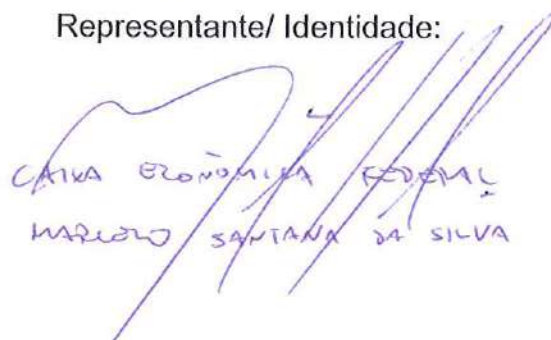 Representante/ Identidade:
CAIXA ECONÔMICA FEDERAL
MARCELO SANTANA DA SILVA